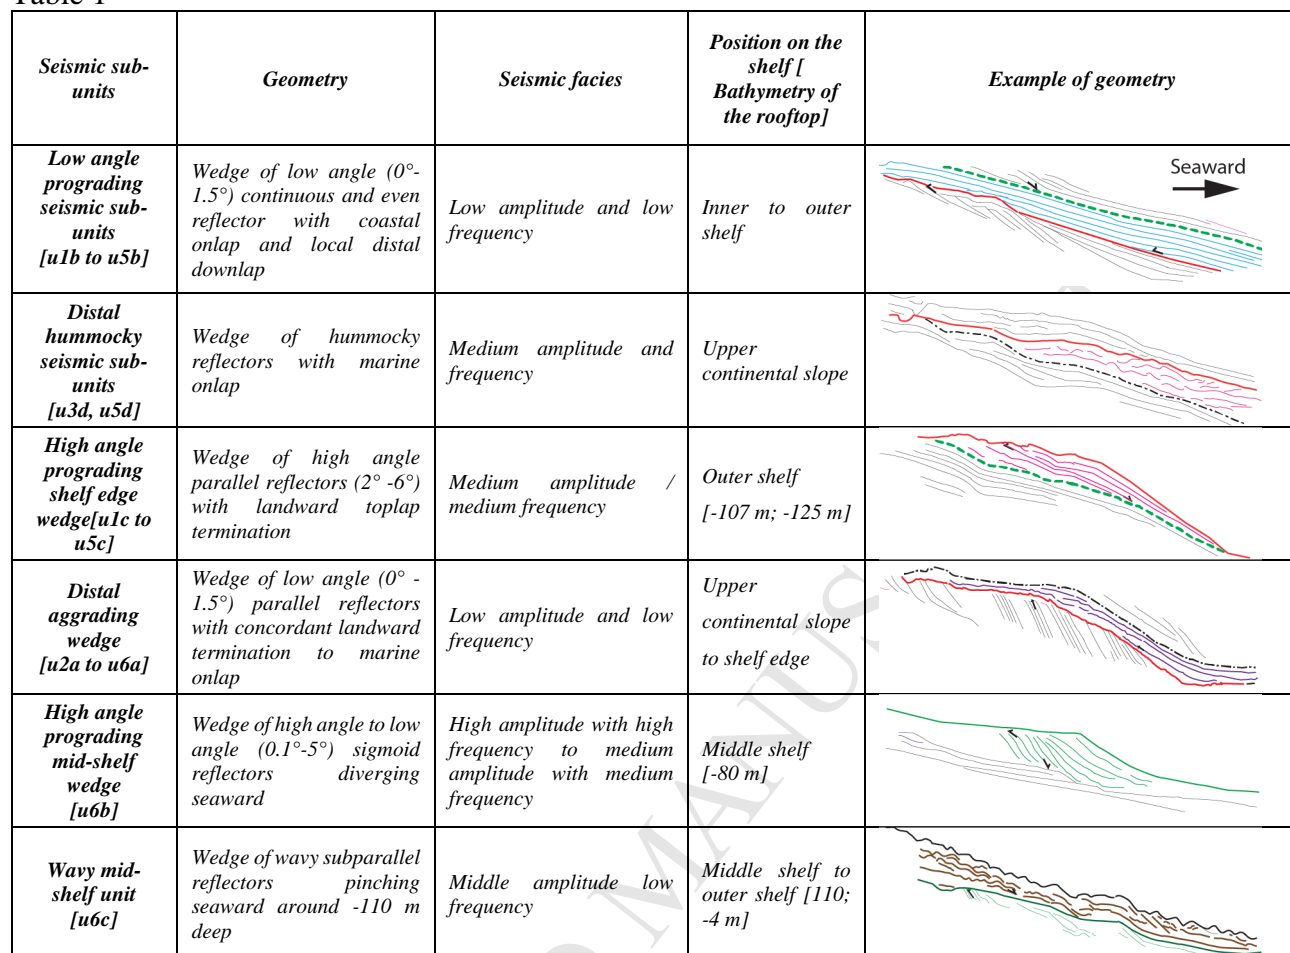 Table 1
Seismic sub-
units
Geometry
Seismic facies
Position on the
shelf [
Bathymetry of
the rooftop]
Example of geometry
Low angle
prograding
seismic sub-
units
[u1b to u5b]
Wedge of low angle (0°-
1.5°) continuous and even
reflector with coastal
onlap and local distal
downlap
Low amplitude and low
frequency
Inner to outer
shelf
Seaward
Distal
hummocky
seismic sub-
units
[u3d, u5d]
Wedge of hummocky
reflectors with marine
onlap
Medium amplitude and
frequency
Upper
continental slope
High angle
prograding
shelf edge
wedge[u1c to
u5c]
Wedge of high angle
parallel reflectors (2° -6°)
with landward toplap
termination
Medium amplitude /
medium frequency
Outer shelf
[-107 m; -125 m]
Distal
aggrading
wedge
[u2a to u6a]
Wedge of low angle (0° -
1.5°) parallel reflectors
with concordant landward
termination to marine
onlap
Low amplitude and low
frequency
Upper
continental slope
to shelf edge
High angle
prograding
mid-shelf
wedge
[u6b]
Wedge of high angle to low
angle (0.1°-5°) sigmoid
reflectors diverging
seaward
High amplitude with high
frequency to medium
amplitude with medium
frequency
Middle shelf
[-80 m]
Wavy mid-
shelf unit
[u6c]
Wedge of wavy subparallel
reflectors pinching
seaward around -110 m
deep
Middle amplitude low
frequency
Middle shelf to
outer shelf [110;
-4 m]
MANUS